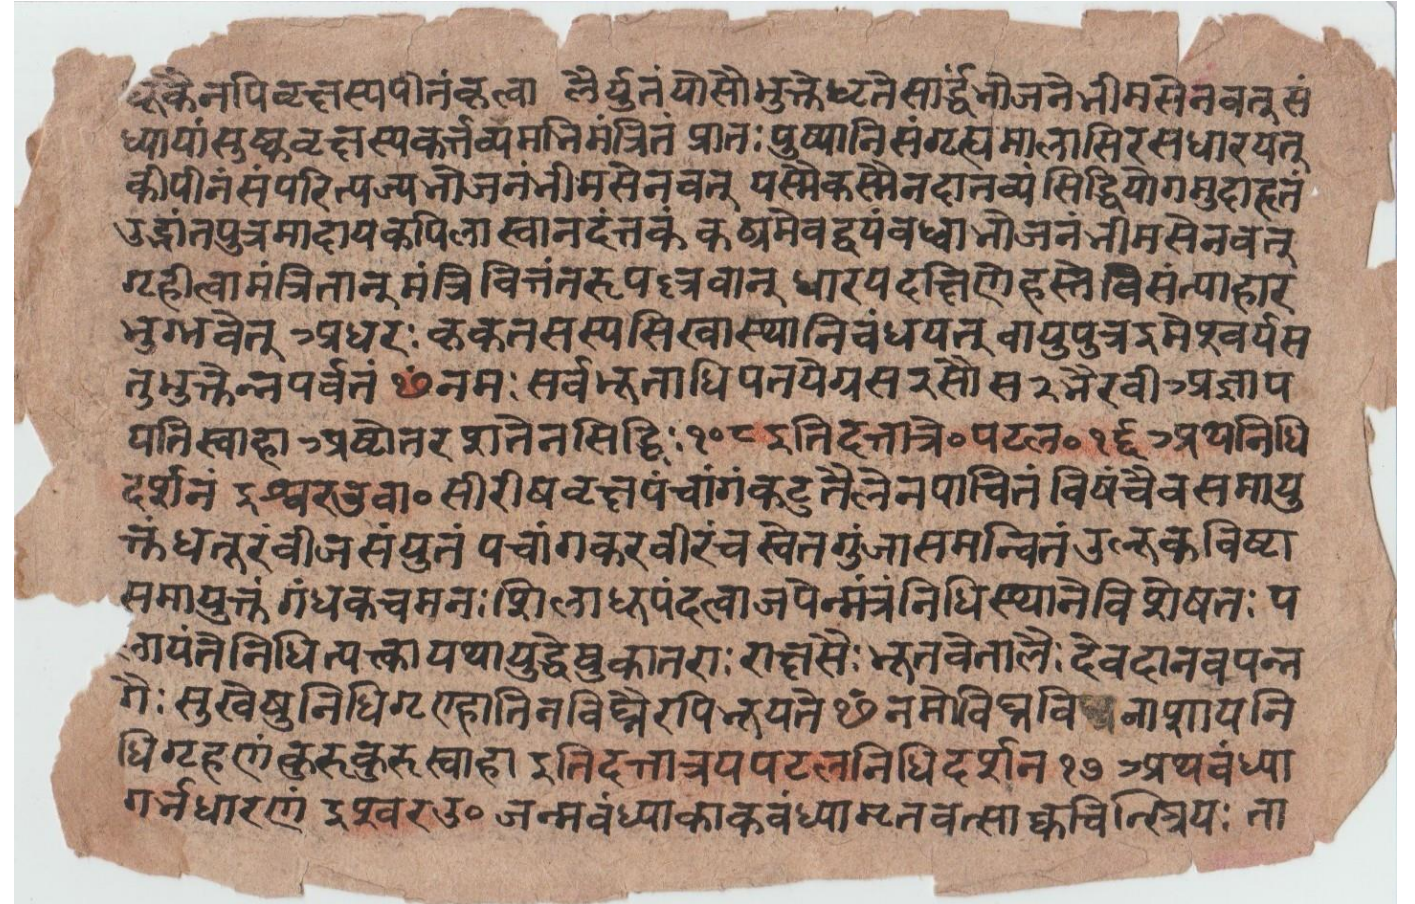 धूकेनपिवटक्षस्यपीतंकत्वा लैर्युतंयोसौभुक्तेघृतेसार्द्धंभोजनेभीमसेनवत् सं
ध्यायांसुष्कवटक्षस्यकर्त्तव्यमभिमंत्रितं प्रातः पुष्पानिसंगृह्यमालासिरसधारयत्
कौपीनंसंपरित्यज्यभोजनंभीमसेनवत् यस्मैकस्मैनदातव्यंसिद्धियोगमुदाहृतं
उद्भ्रांतपुत्रमादायकपिलास्वानदंतकं कट्यमेवद्वयंवध्वाभोजनंभीमसेनवत्
गृहीत्वामंत्रितान्मंत्रि धारयदक्षिणेहस्ते
इमेश्वर्यस
ॐनमः सर्वभूताधिपतये भैरवी
पतिस्वाहा अष्टोतरशतेनसिद्धिः १०८ इतिदत्तात्रे० पटल० १६ अथनिधि
दर्शनं इश्वरउवा० सीरीषवृक्षपंचांगंकटुतैलेनपाचितं विषंचैवसमायु
क्तंधत्तूरंवीजसंयुतं पचांगकरवीरंच स्वेतगुंजासमन्वितं उलूकविष्टा
समायुक्तं गंधकचमनःशिलाधूपंदत्वाजपेन्मंत्रंनिधिस्थानेविशेषतः प
लायंतेनिधित्यक्त्वायथायुद्धेषुकातराः राक्षसैः भूतवेतालैः देवदानवपन्न
गैः सुखेषुनिधिगृण्हातिनविघ्नैरपिभूयते ॐ नमोविघ्नवि नाशायनि
धिगृहणंकुरुकुरुस्वाहा इतिदत्तात्रयपटलनिधिदर्शन १७ अथवंध्या
गर्भधारणं इश्वरउ० जन्मवंध्याकाकवंध्यामृतवत्साक्वचित्स्त्रियः ता